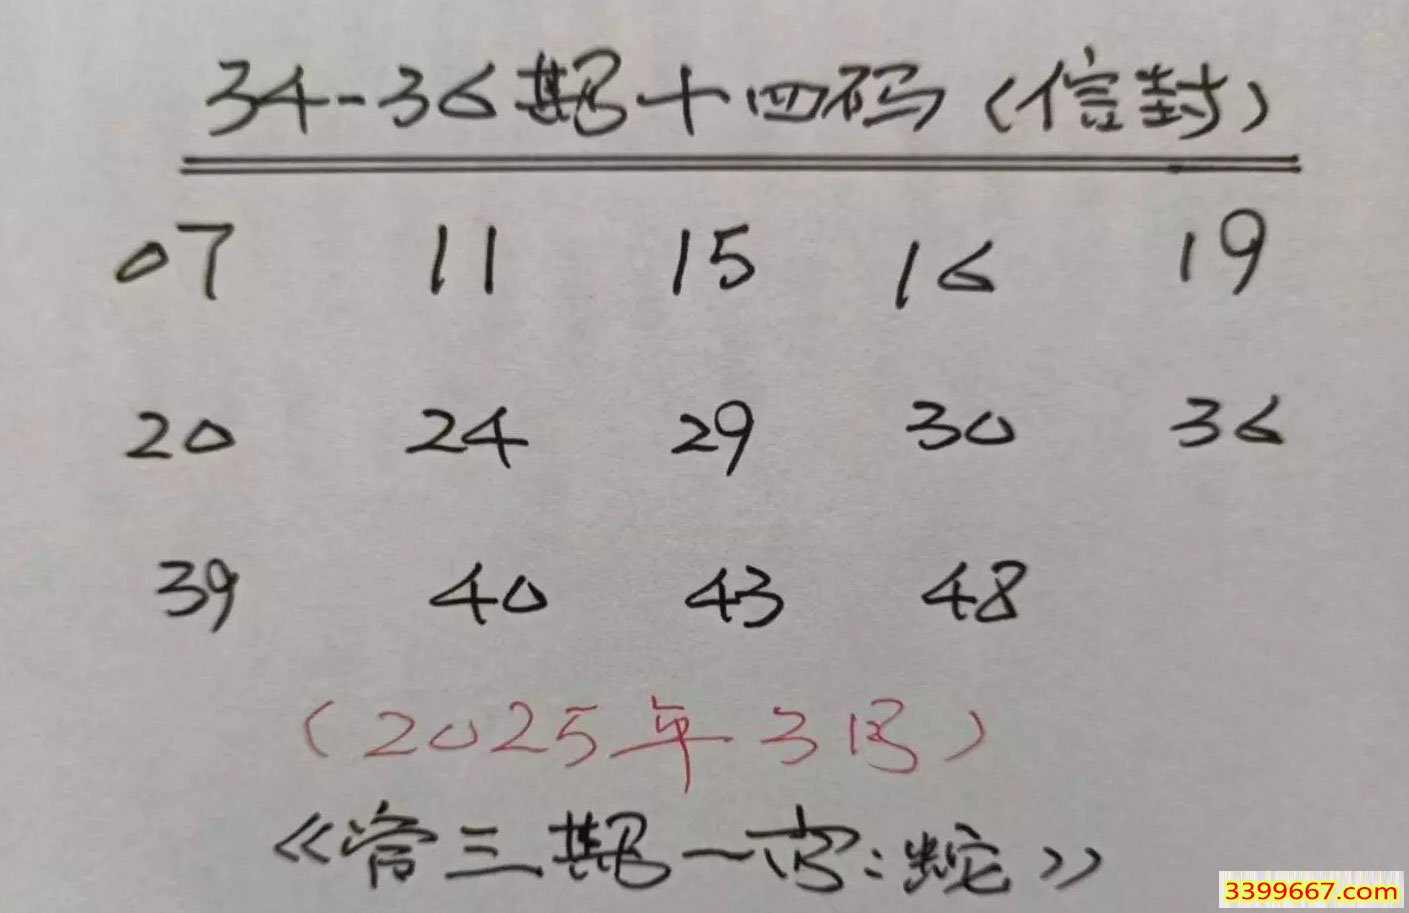 34-36期十四码(信封)
07 11 15 16 19
20 24 29 30 36
39 40 43 48
(2025年3月)
《管三期一字:蛇》
3399667.com